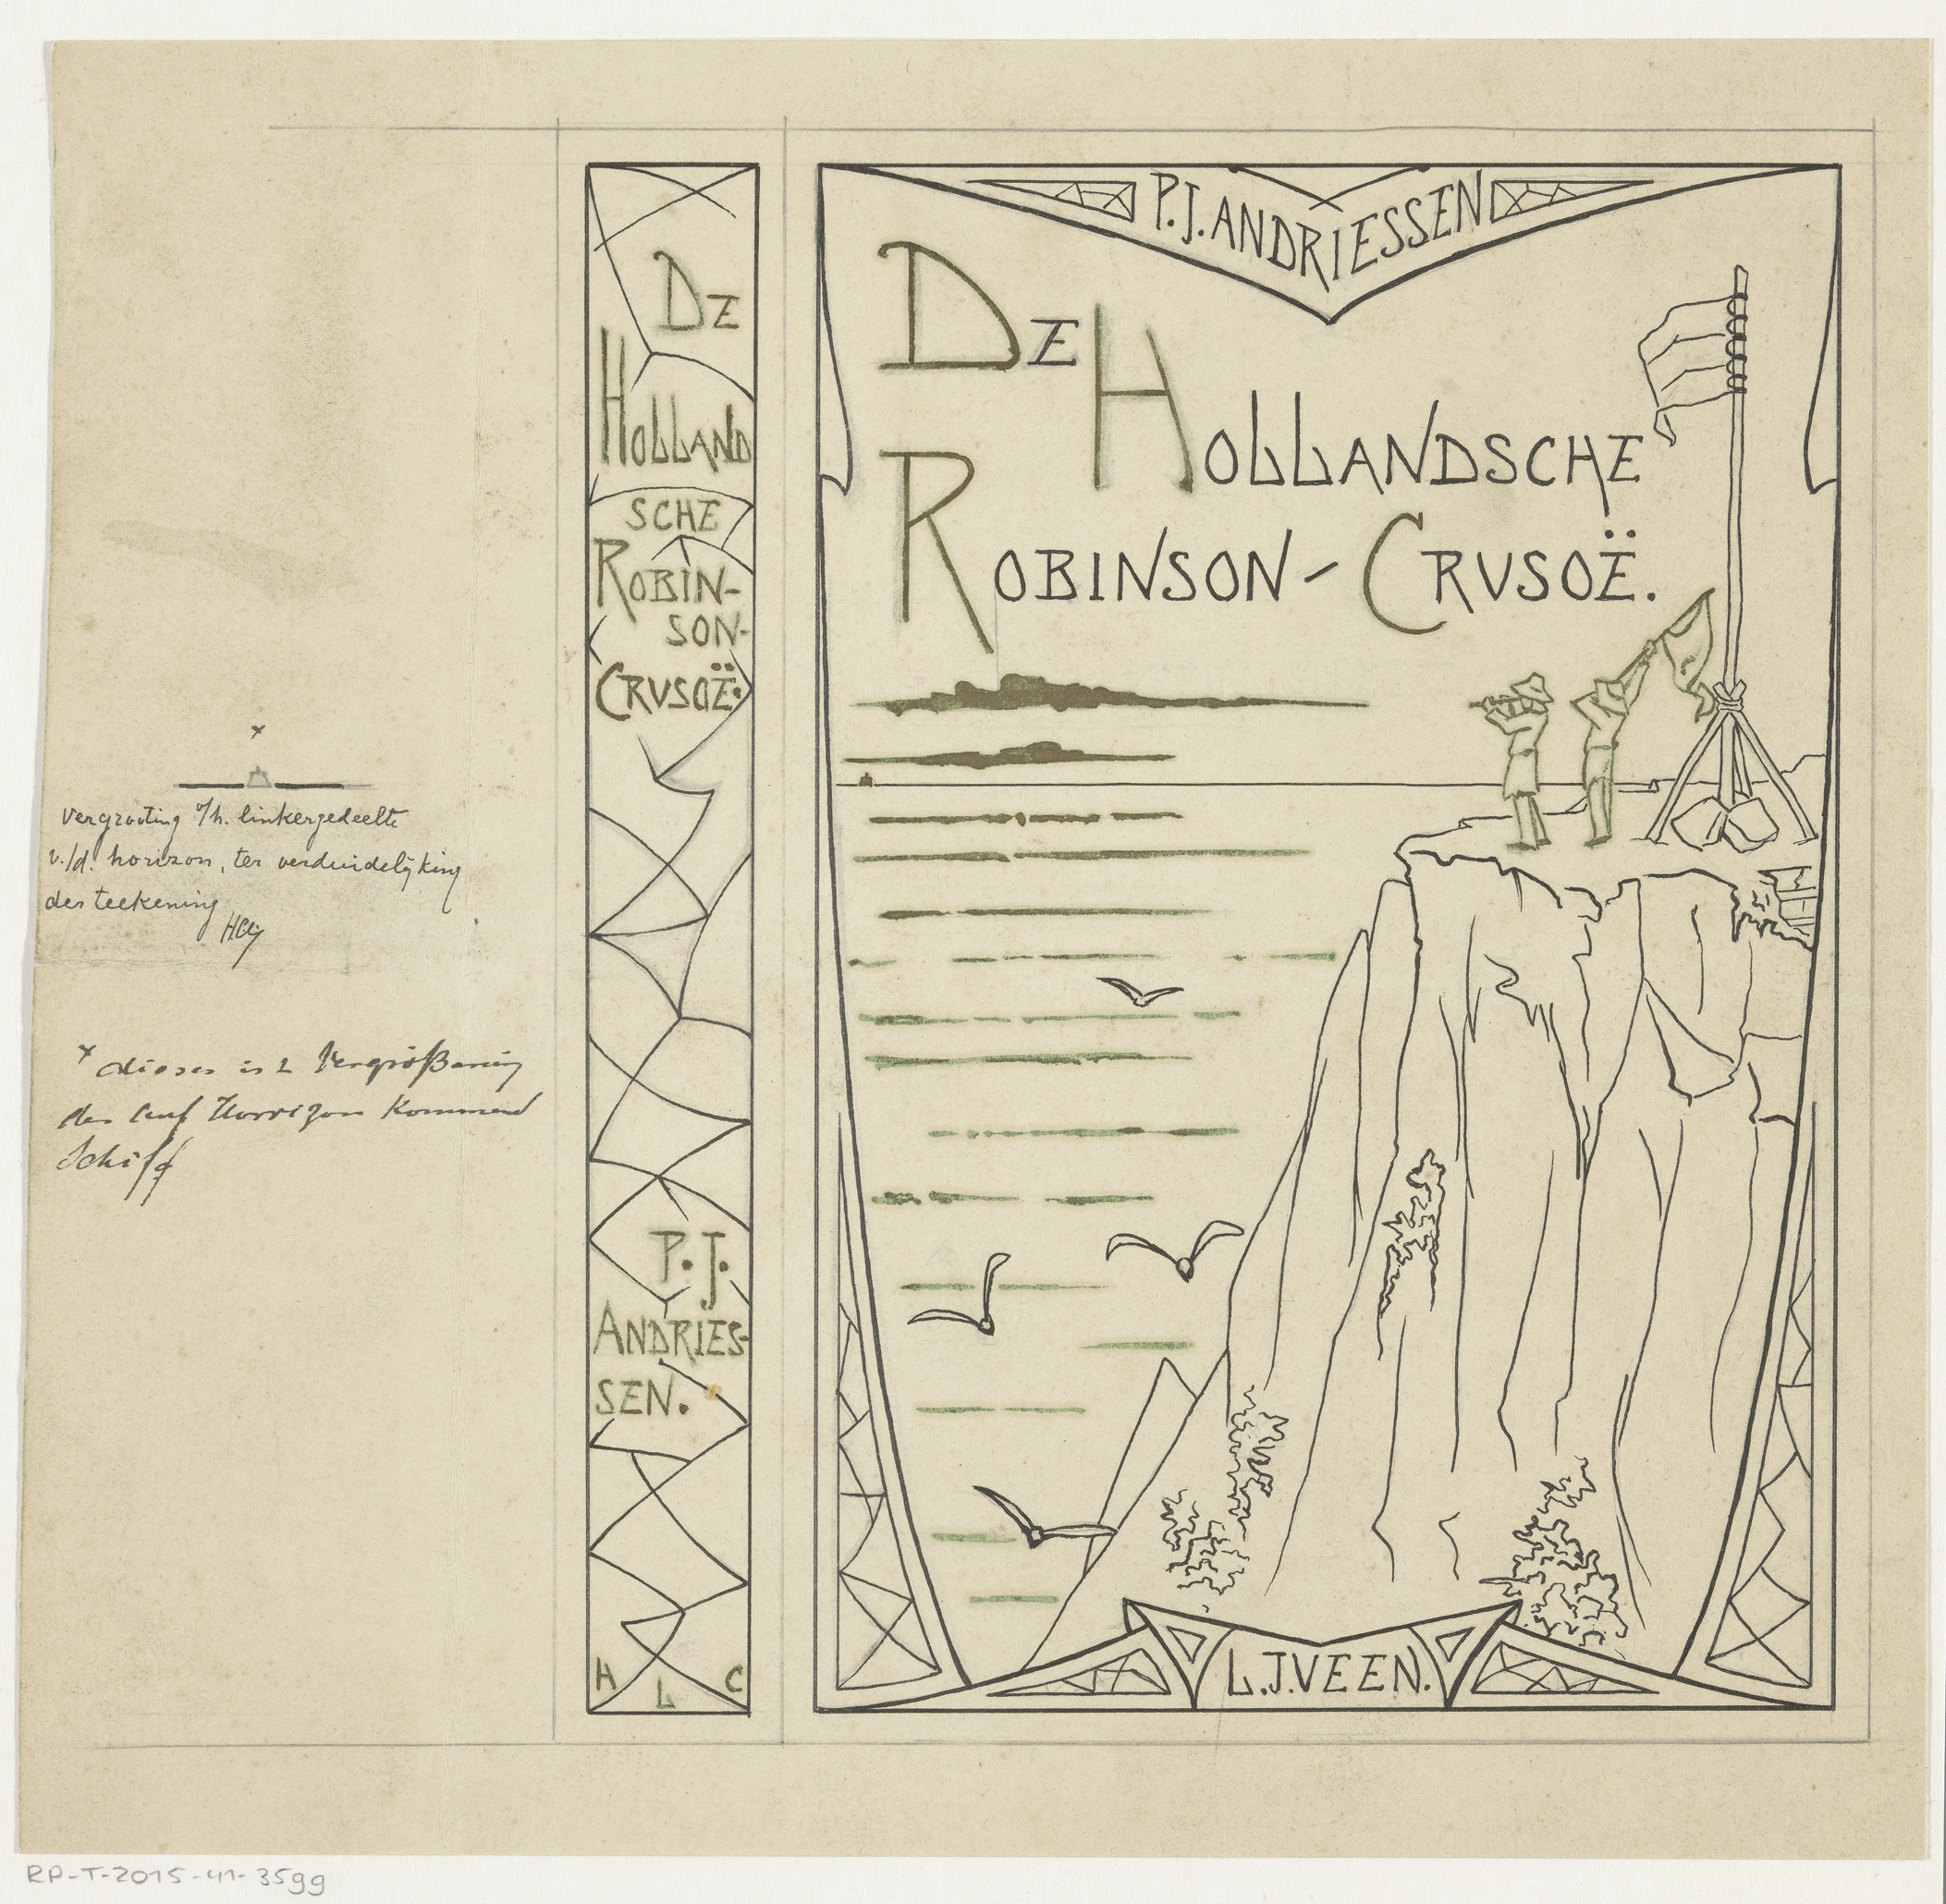 x
vergrooting v/h. linkergedeelte
v./d. horizon, ter verduidelijking
der teekening
x dieses is 1 Vergrößerung
des auf Horrizon Kommend
Schiff
DE
HOLLAND
SCHE
ROBIN-
SON-
CRUSOË.
P. J.
ANDRIES-
SEN.
H L C
P.J. ANDRIESSEN
DE HOLLANDSCHE
ROBINSON-CRUSOË.
L.J.VEEN.
RP-T-2015-41-3599